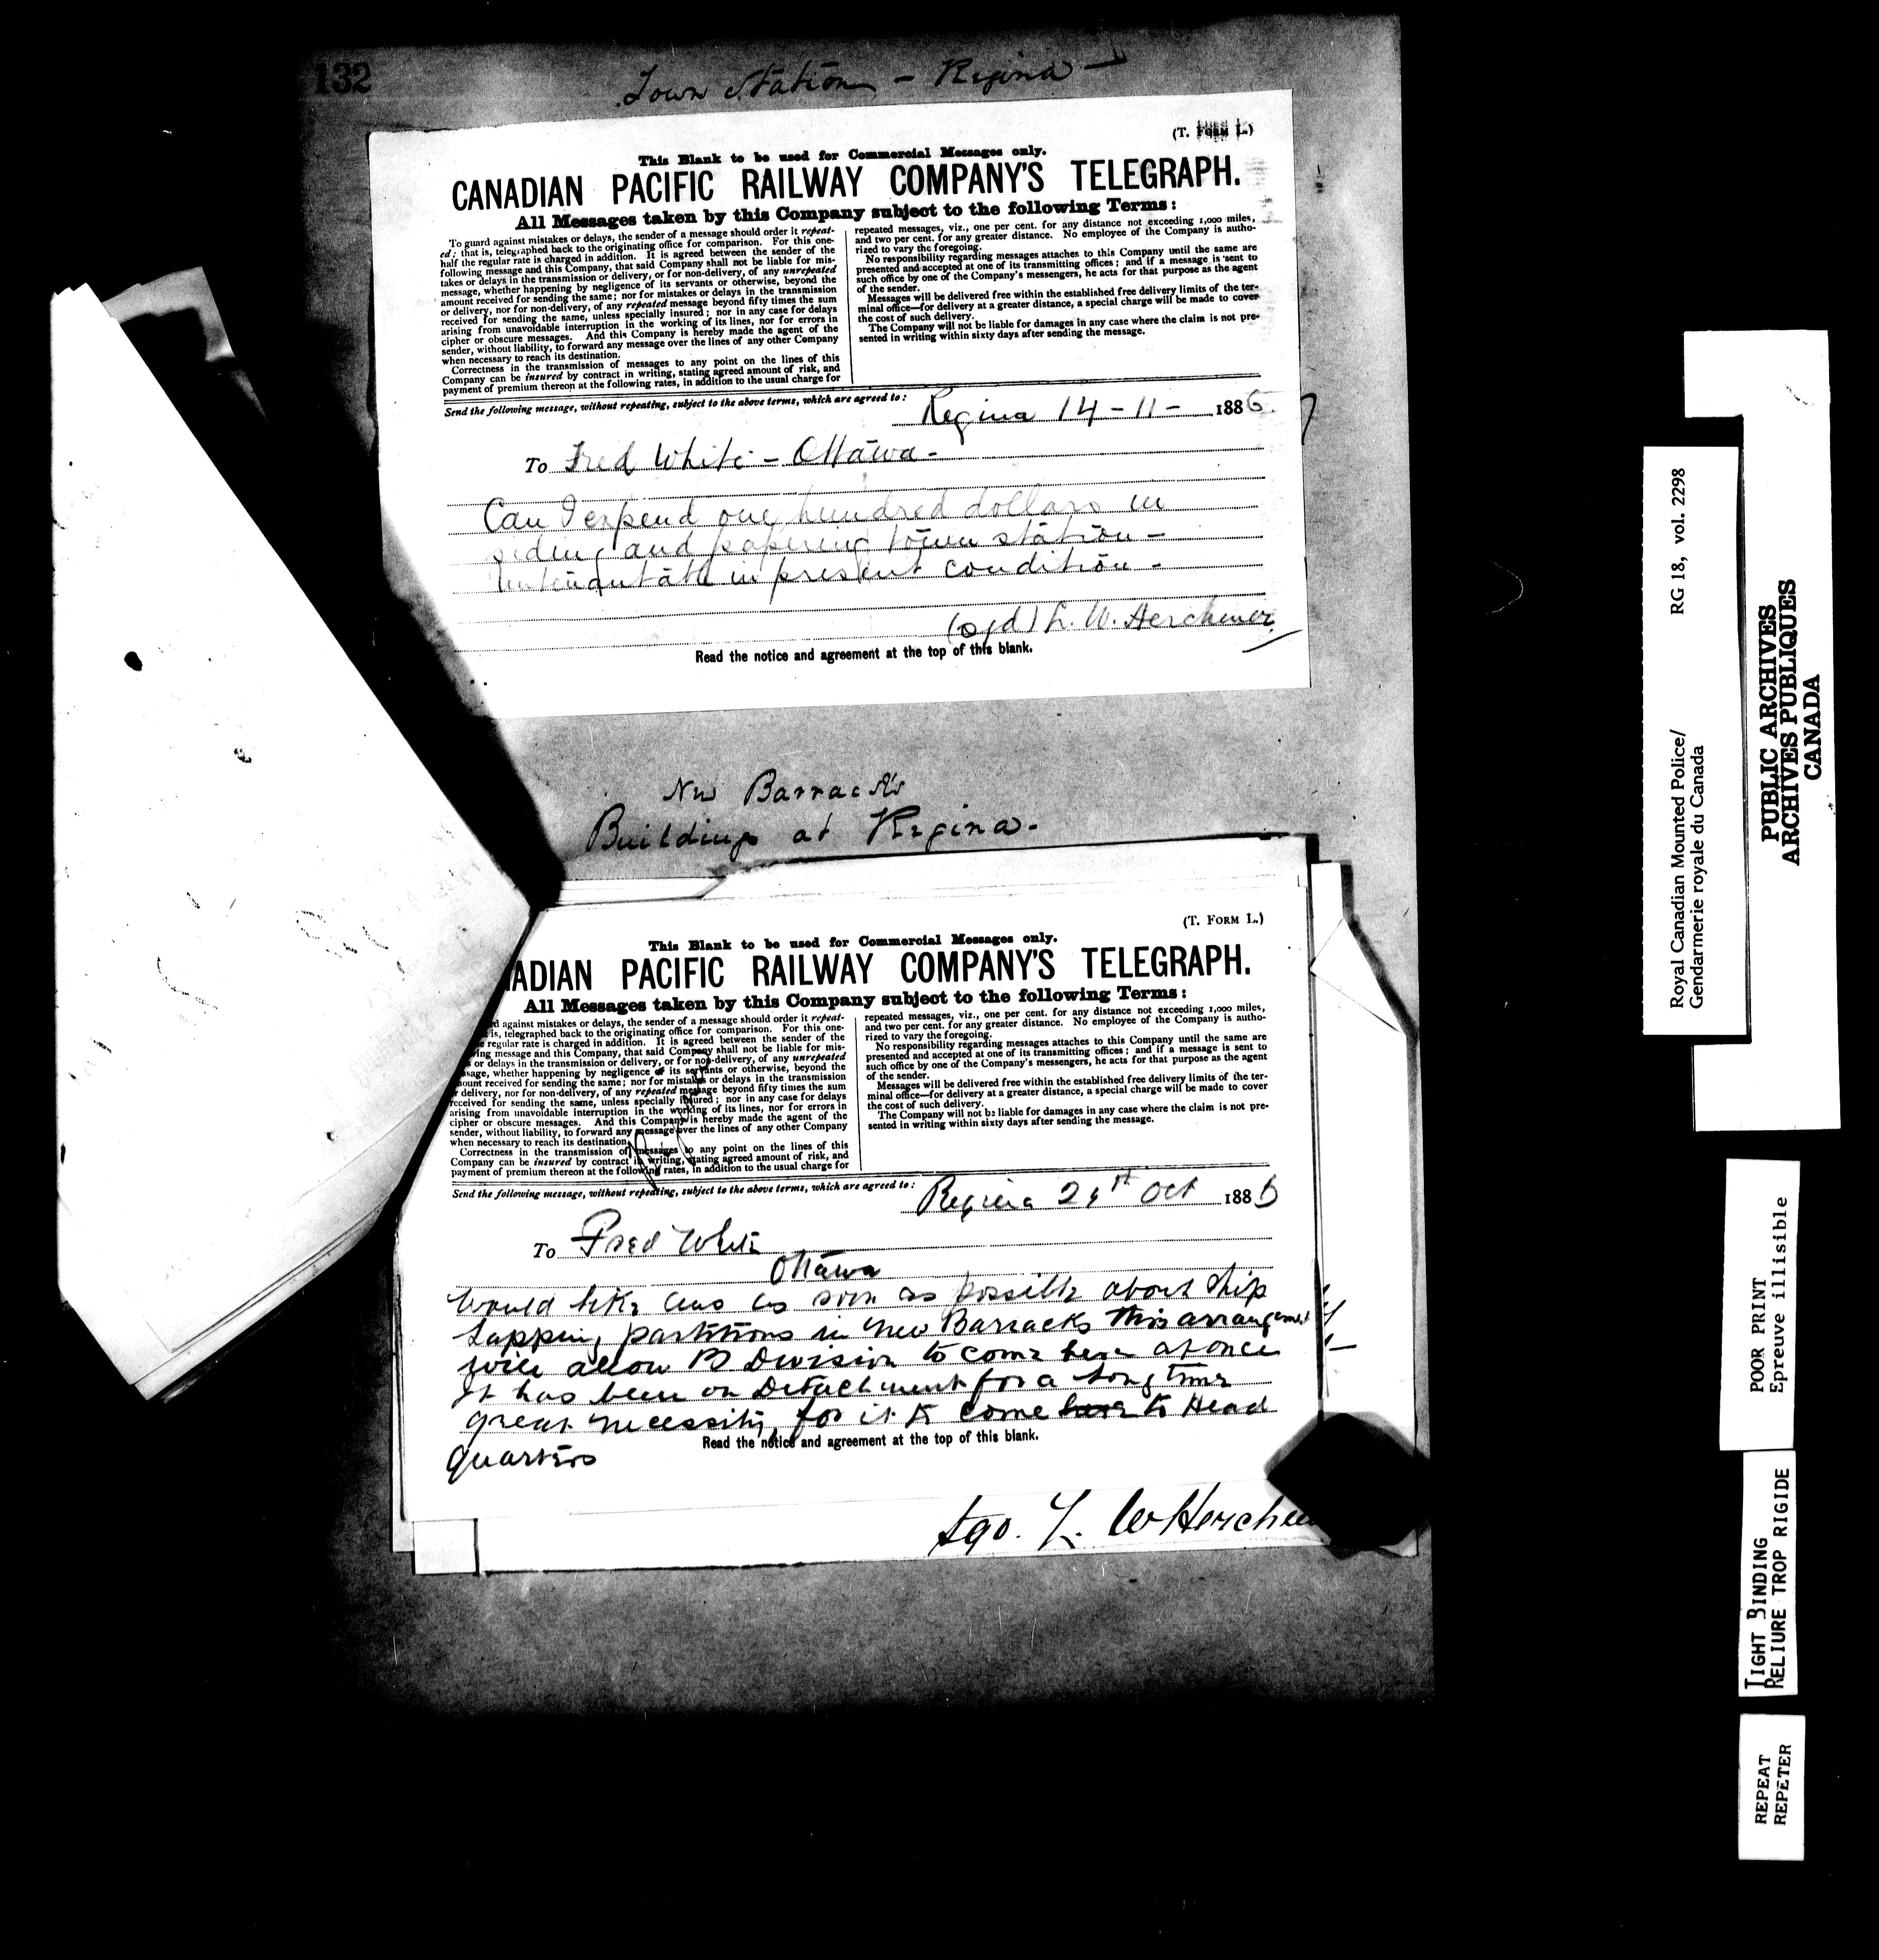 132
Town Station - Regina
(T. FORM L.)
This Blank to be used for Commercial Messages only.
CANADIAN PACIFIC RAILWAY COMPANY'S TELEGRAPH.
All Messages taken by this Company subject to the following Terms:
To guard against mistakes or delays, the sender of a message should order it repeat-
ed; that is, telegraphed back to the originating office for comparison. For this one-
half the regular rate is charged in addition. It is agreed between the sender of the
following message and this Company, that said Company shall not be liable for mis-
takes or delays in the transmission or delivery, or for non-delivery, of any unrepeated
message, whether happening by negligence of its servants or otherwise, beyond the
amount received for sending the same; nor for mistakes or delays in the transmission
or delivery, nor for non-delivery, of any repeated message beyond fifty times the sum
received for sending the same, unless specially insured; nor in any case for delays
arising from unavoidable interruption in the working of its lines, nor for errors in
cipher or obscure messages. And this Company is hereby made the agent of the
sender, without liability, to forward any message over the lines of any other Company
when necessary to reach its destination.
Correctness in the transmission of messages to any point on the lines of this
Company can be insured by contract in writing, stating agreed amount of risk, and
payment of premium thereon at the following rates, in addition to the usual charge for
repeated messages, viz., one per cent. for any distance not exceeding 1,000 miles,
and two per cent. for any greater distance. No employee of the Company is autho-
rized to vary the foregoing.
No responsibility regarding messages attaches to this Company until the same are
presented and accepted at one of its transmitting offices; and if a message is sent to
such office by one of the Company's messengers, he acts for that purpose as the agent
of the sender.
Messages will be delivered free within the established free delivery limits of the ter-
minal office—for delivery at a greater distance, a special charge will be made to cover
the cost of such delivery.
The Company will not be liable for damages in any case where the claim is not pre-
sented in writing within sixty days after sending the message.
Send the following message, without repeating, subject to the above terms, which are agreed to:
Regina 14 - 11 - 1886
To Fred White - Ottawa -
Can I expend one hundred dollars in
siding and papering town station -
untenantable in present condition -
(sgd) L. W. Herchmer
Read the notice and agreement at the top of this blank.
New Barracks
Buildings at Regina.
(T. FORM L.)
This Blank to be used for Commercial Messages only.
ADIAN PACIFIC RAILWAY COMPANY'S TELEGRAPH.
All Messages taken by this Company subject to the following Terms:
d against mistakes or delays, the sender of a message should order it repeat-
is, telegraphed back to the originating office for comparison. For this one-
regular rate is charged in addition. It is agreed between the sender of the
ing message and this Company, that said Company shall not be liable for mis-
or delays in the transmission or delivery, or for non-delivery, of any unrepeated
sage, whether happening by negligence of its servants or otherwise, beyond the
ount received for sending the same; nor for mistakes or delays in the transmission
r delivery, nor for non-delivery, of any repeated message beyond fifty times the sum
received for sending the same, unless specially insured; nor in any case for delays
arising from unavoidable interruption in the working of its lines, nor for errors in
cipher or obscure messages. And this Company is hereby made the agent of the
sender, without liability, to forward any message over the lines of any other Company
when necessary to reach its destination.
Correctness in the transmission of messages to any point on the lines of this
Company can be insured by contract in writing, stating agreed amount of risk, and
payment of premium thereon at the following rates, in addition to the usual charge for
repeated messages, viz., one per cent. for any distance not exceeding 1,000 miles,
and two per cent. for any greater distance. No employee of the Company is autho-
rized to vary the foregoing.
No responsibility regarding messages attaches to this Company until the same are
presented and accepted at one of its transmitting offices; and if a message is sent to
such office by one of the Company's messengers, he acts for that purpose as the agent
of the sender.
Messages will be delivered free within the established free delivery limits of the ter-
minal office—for delivery at a greater distance, a special charge will be made to cover
the cost of such delivery.
The Company will not be liable for damages in any case where the claim is not pre-
sented in writing within sixty days after sending the message.
Send the following message, without repeating, subject to the above terms, which are agreed to:
Regina Oct 1886
To Fred White
Ottawa
Would like ans as soon as possible about ship
lapping partitions in new Barracks this arrangement
will allow B Division to come here at once
It has been on Detachment for a long time
great necessity for it to come here to Head
Read the notice and agreement at the top of this blank.
quarters
Sgd. L. W Herchm
Royal Canadian Mounted Police/ RG 18, vol. 2298
Gendarmerie royale du Canada
PUBLIC ARCHIVES
ARCHIVES PUBLIQUES
CANADA
POOR PRINT
Epreuve illisible
TIGHT BINDING
RELIURE TROP RIGIDE
REPEAT
REPETER